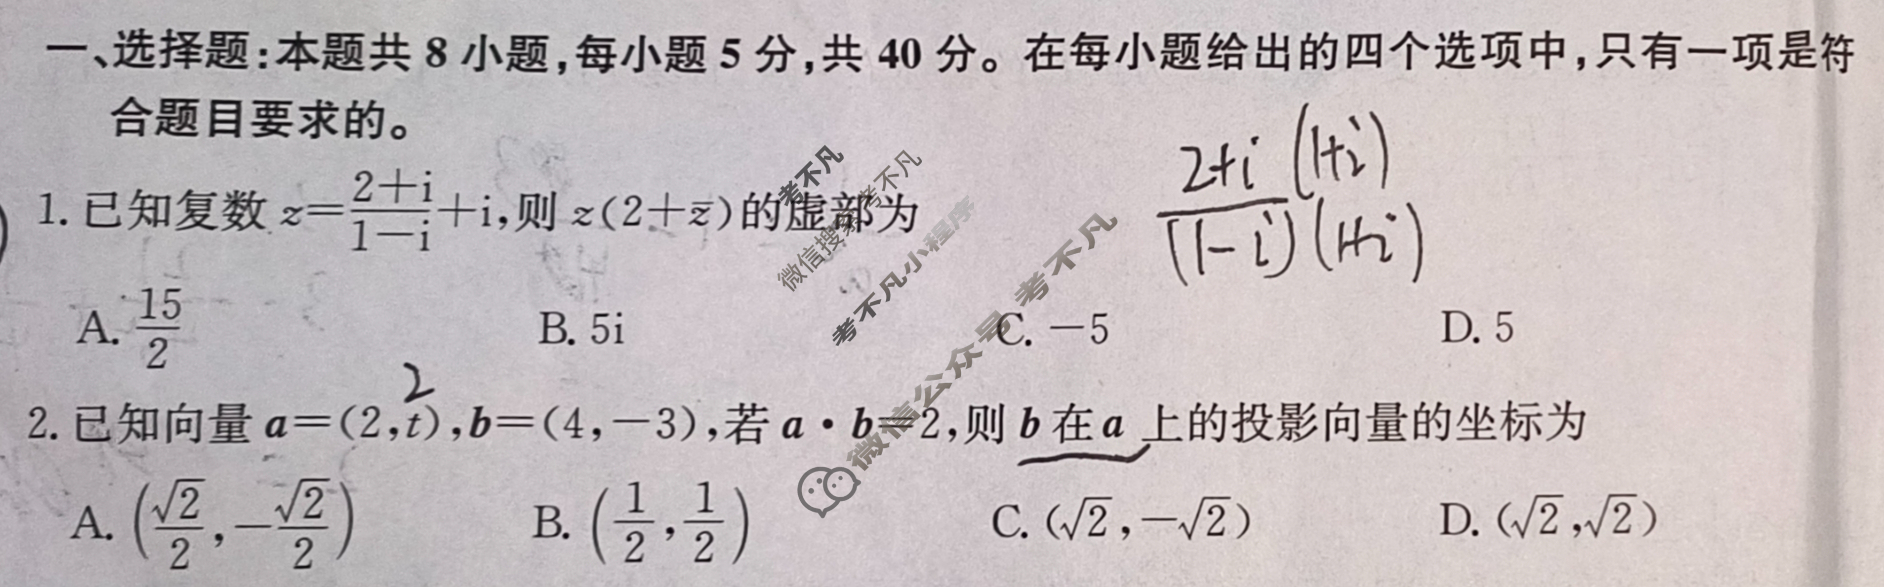 一、选择题:本题共 8 小题,每小题 5 分,共 40 分。在每小题给出的四个选项中,只有一项是符
合题目要求的。
1. 已知复数 z=\frac{2+i}{1-i}+i,则 z(2+\bar{z})的虚部为
\frac{2+i (1+i)}{(1-i)(1+i)}
A. \frac{15}{2} B. 5i C. -5 D. 5
2
2. 已知向量 a=(2,t),b=(4,-3),若 a·b=2,则 b 在 a 上的投影向量的坐标为
A. (\frac{\sqrt{2}}{2},-\frac{\sqrt{2}}{2}) B. (\frac{1}{2},\frac{1}{2}) C. (\sqrt{2},-\sqrt{2}) D. (\sqrt{2},\sqrt{2})
考不凡
微信搜索考不凡
考不凡小程序
微信公众号 考不凡